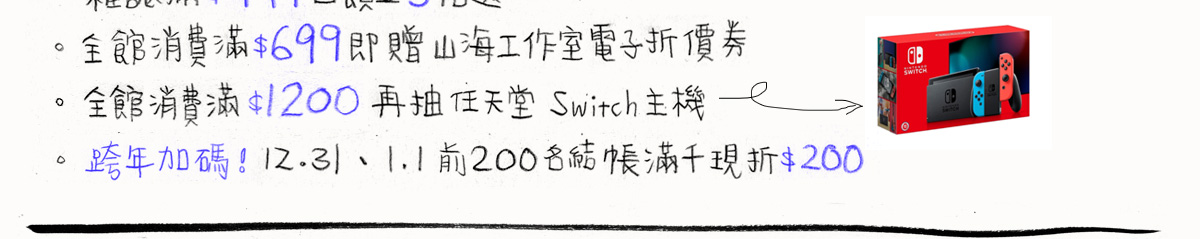 。全館消費滿$699即贈山海工作室電子折價券
。全館消費滿$1200再抽任天堂Switch主機
。跨年加碼！12.31、1.1前200名結帳滿千現折$200
NINTENDO
SWITCH